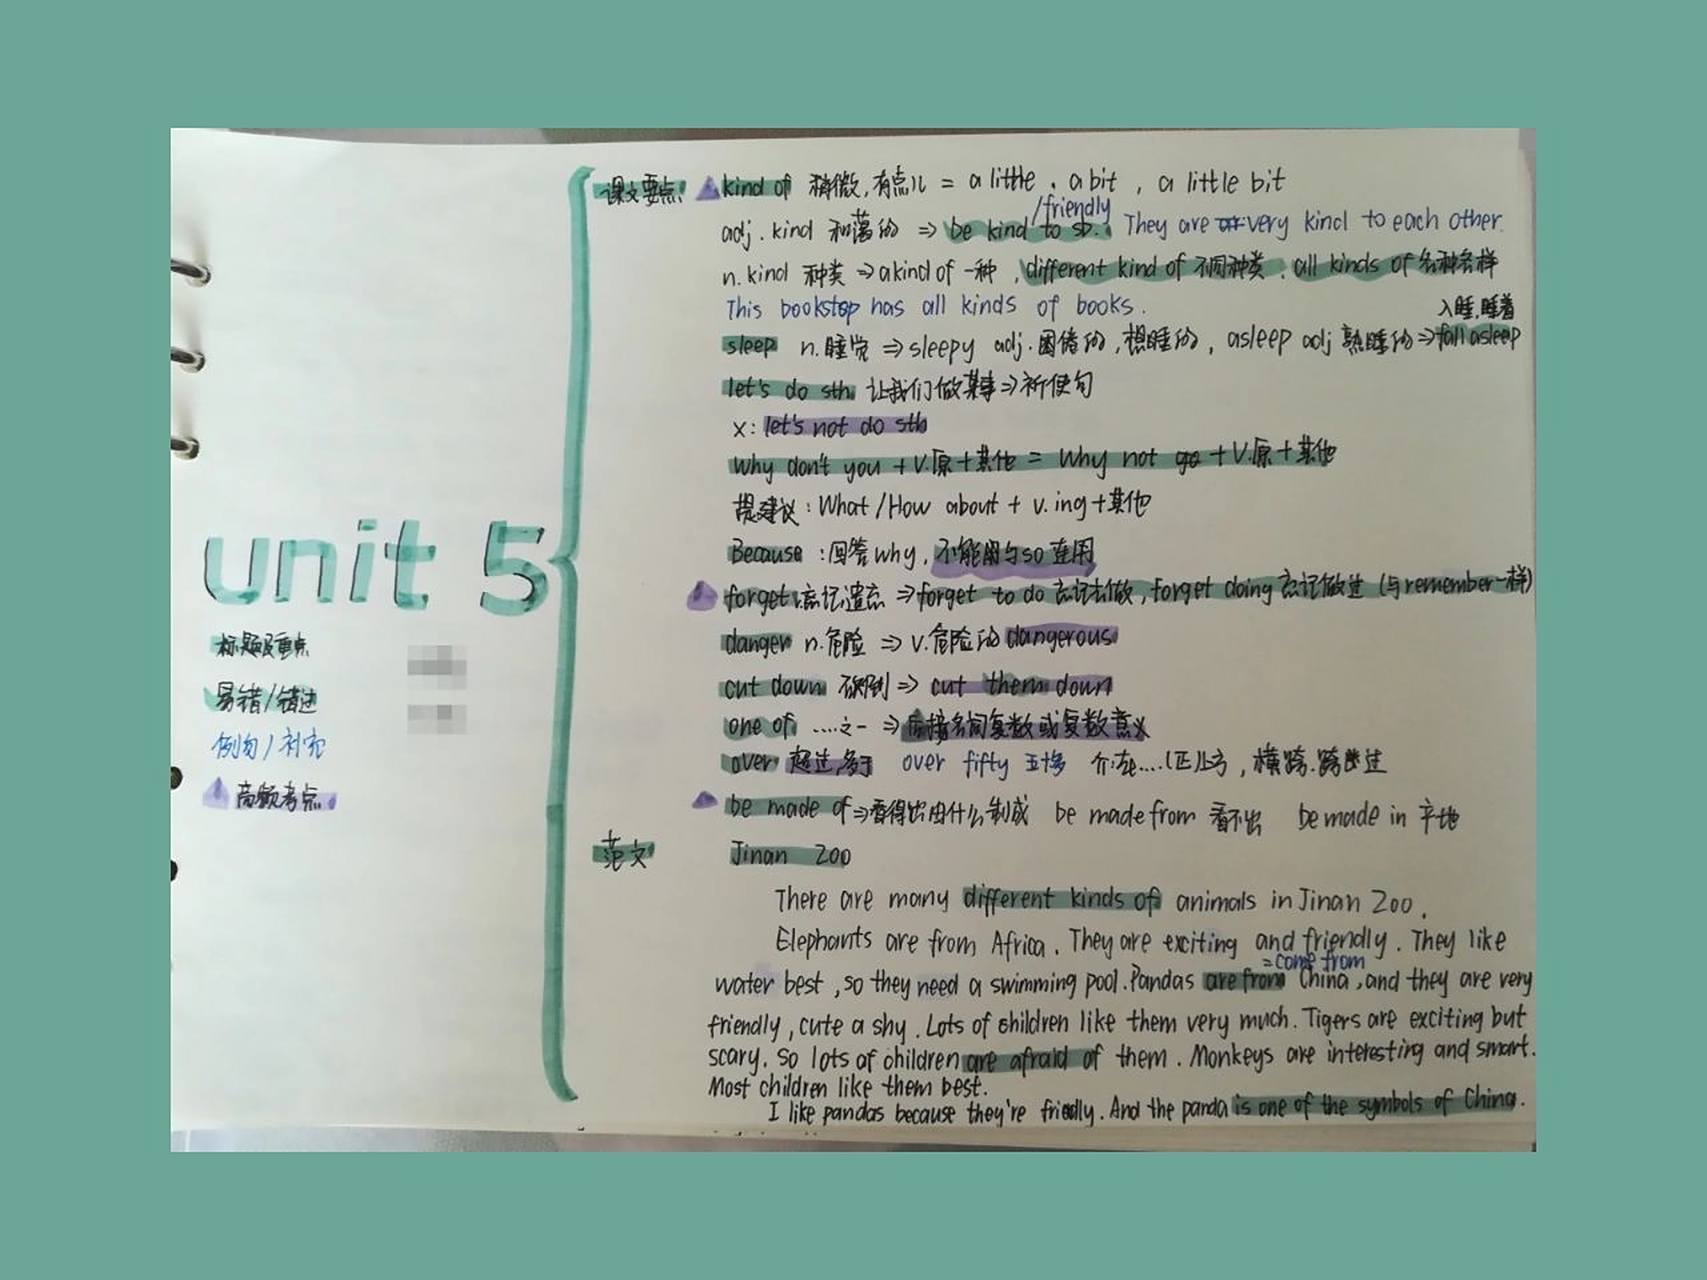 unit 5
标题及重点
易错/错过
例句/补充
高频考点
课文要点:
kind of 稍微,有点儿 = a little , a bit , a little bit
/friendly
adj. kind 和蔼的 ⇒ be kind to sb. They are very kind to each other.
n. kind 种类 ⇒ a kind of 一种 , different kind of 不同种类 , all kinds of 各种各样
This bookstop has all kinds of books.
入睡,睡着
sleep n.睡觉 ⇒ sleepy adj.困倦的,想睡的, asleep adj 熟睡的 ⇒ fall asleep
let's do sth. 让我们做某事 ⇒ 祈使句
x: let's not do sth
Why don't you + v.原 + 其他 = Why not + v.原 + 其他
提建议: What / How about + v. ing + 其他
Because : 回答why, 不能与so连用
forget 忘记遗忘 ⇒ forget to do 忘记去做, forget doing 忘记做过 (与remember一样)
danger n.危险 ⇒ v.危险的 dangerous
cut down 砍倒 ⇒ cut them down
one of ....之一 ⇒ 后接名词复数或复数意义
over 超过,多于 over fifty 五十多 介:在....(正)上方, 横跨.跨过
be made of ⇒ 看得出由什么制成 be made from 看不出 be made in 产地
范文
Jinan Zoo
There are many different kinds of animals in Jinan Zoo.
Elephants are from Africa. They are exciting and friendly. They like
=come from
water best, so they need a swimming pool. Pandas are from China, and they are very
friendly, cute a shy. Lots of children like them very much. Tigers are exciting but
scary. So lots of children are afraid of them. Monkeys are interesting and smart.
Most children like them best.
I like pandas because they're friendly. And the panda is one of the symbols of China.